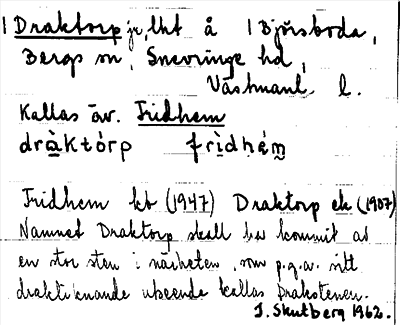 1 Draktorp jr, lht å 1 Björsboda,
Bergs sn, Snevringe hd,
Västmanl. l.
Kallas äv. Fridhem
dràktórp frìdhém
Fridhem kt (1947) Draktorp ek (1907)
Namnet Draktorp skall ha kommit av
en stor sten i närheten, som p.g.a. sitt
drakliknande utseende kallas Drakstenen.
J. Skutberg 1962.